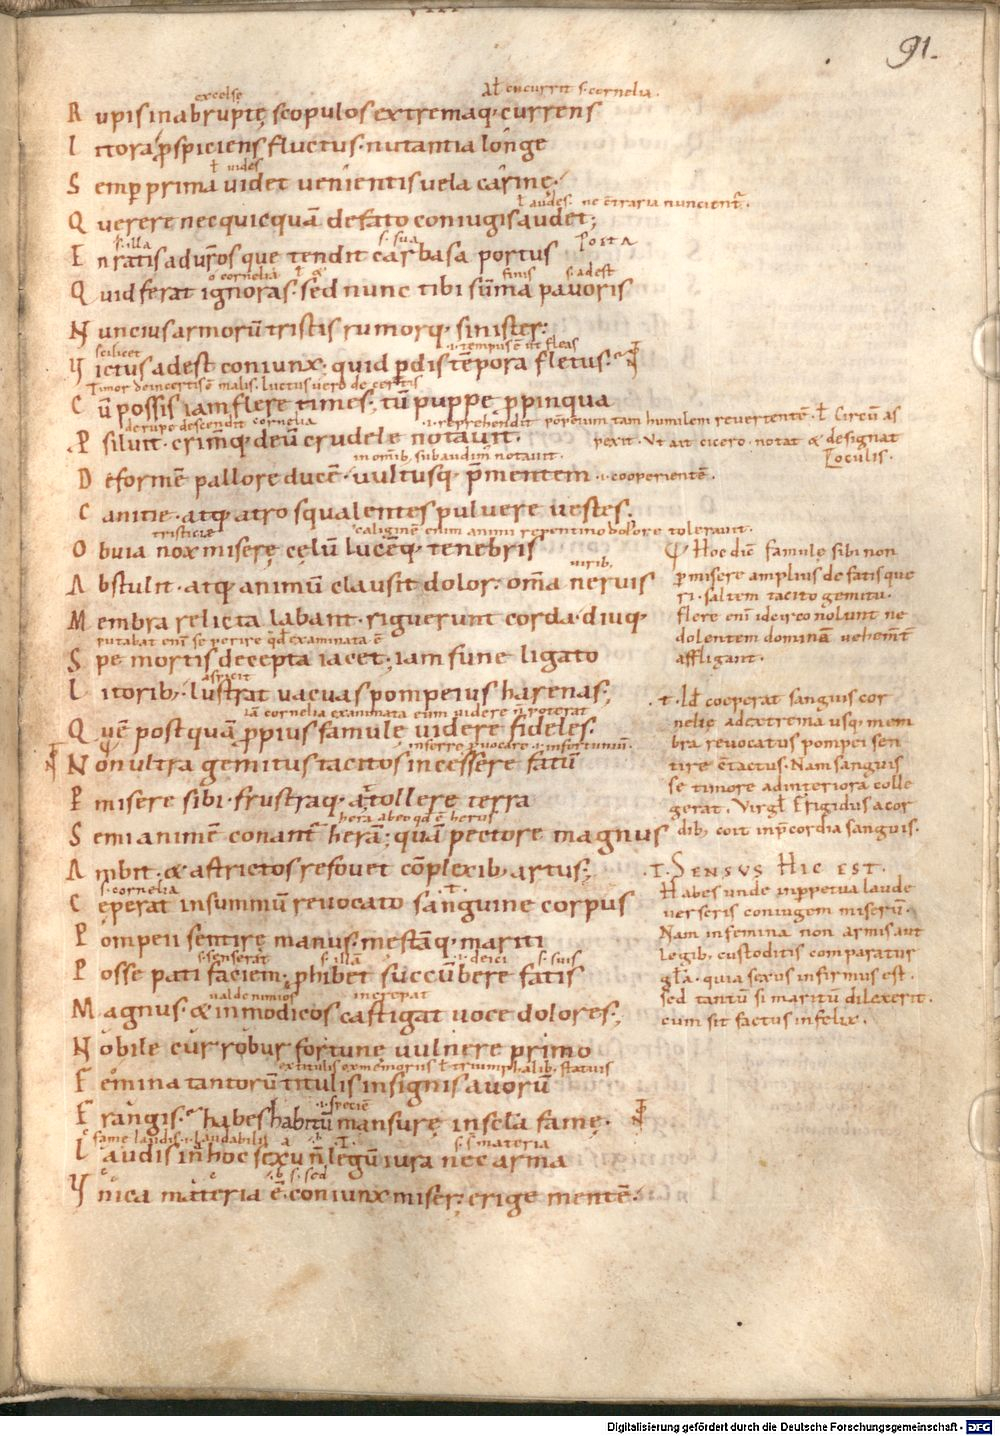 VIII
91.
excelse
Ał encurrit s· cornelia .
R upis in abruptę scopulos extremaq· currens
I ttora p̱spiciens fluctus· nutantia longe
ł uides
S emp̱ prima uidet uenientis uela carinę·
ł audes· ne c̄traria nuncient᷑·
Q uerere nec quicquā de fato coniugis audet;
s· illa s· sua porta
E n ratis ad ur̄os que tendit carbasa portus
o cornelia ł & finis s· adest
Q uid ferat ignoras· sed nunc tibi sūma pauoris
N uncius armorū tristis rumorq· sinister·
scilicet .i. tempus ē ut fleas
V ictus adest coniunx· quid p̱dis tēpora fletus·
Timor de incertis ē malis· luctus uero de certis
C ū possis iam flere times; tū puppe p̱pinqua
de rupe descendit cornelia .i. reprehendit pōpeium tam humilem reuertentē· ł Circū as
P siluit· crimq· deū crudele notauit· pexit· Ut ait cicero· notat & designat
in om̄ib; subaudim᷒ notauit· oculis·
D eformē pallore ducē· uultusq· p̄mentem .i. cooperientē·
C anitie· atq· atro squalentes puluere uestes·
tristiciæ caliginē enim animi repentino dolore tolerauit·
O buia nox miserę cęlū lucēq· tenebris
uirib;
A bstulit· atq· animū clausit dolor· om̄a neruis
M embra relicta labant· riguerunt corda· diuq·
putabat eni se perire q̄d examinata ē
S pe mortis decepta iacet; iam fune ligato
aspicit
L itorib; lustrat uacuas pompeius harenas;
iā cornelia examinata eum uidere n̄ poterat
Q uē postquā p̱pius famulę uidere fideles·
inferre p̱uocare .i. infortuniū·
N on ultra gemitus tacitos incessere fatū
P̱ misere sibi· frustraq· attollere terra
hera abeo qd ē herus
S emianimē conant᷑ herā; quā pectore magnus
A mbit· & astrictos refouet cōplexib; artus;
s· cornelia .t.
C eperat in summū reuocato sanguine corpus
P ompeii sentire manus· mestāq· mariti
s· senserat s· illā .i. deici s· suis
P osse pati faciem· p̱hibet succūbere fatis
ualde nimios increpat
M agnus· & inmodicos castigat uoce dolores;
N obile cur robur fortunę uulnere primo
ex titulis ex memoriis ł triumphalib; statuis
F emina tantorū titulis insignis auorū
.i. speciē
F rangis· habes habitū mansurę in sęla famę·
famę laudis .i. laudabilis .T. s· materia
L audis in hoc sexu n̄ legū iura nec arma
s· sed
V nica materia ē· coniunx miser; erige mentē·
Hoc dic̄ famulę sibi non
p̱misere amplius de fatis que
ri· saltem tacito gemitu·
flere eni idcirco nolunt ne
dolentem dominā uehem̄t
affligant·
.t. Id cooperat sanguis cor
nelię ad extrema usq· mem
bra reuocatus pompei sen
tire c̄tactus· Nam sanguis
se timore ad interiora colle
gerat· Virgł frigidus a cor
dib; coit in p̄cordia sanguis·
.T. SENSVS HIC EST·
Habes unde in p̱petua laude
uerseris coniugem miserū·
Nam in femina non armis aut
legib; custoditis comparatur
gła· quia sexus infirmus est·
sed tantū si maritū dilexerit·
cum sit factus infelix·
Digitalisierung gefördert durch die Deutsche Forschungsgemeinschaft - DFG